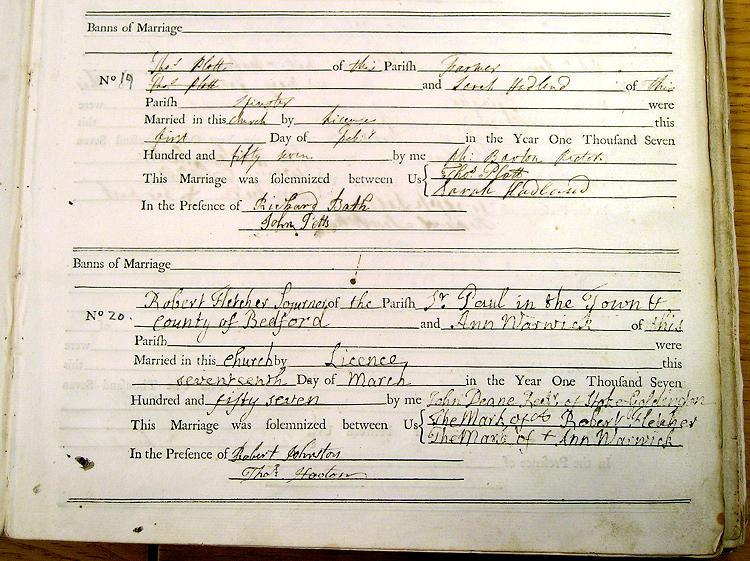 Banns of Marriage
No 19 Thos Plott of this Parish Farmer
Thos Plott and Sarah Hadlend of this
Parish Spinster were
Married in this Church by Licence this
first Day of Feb: in the Year One Thousand Seven
Hundred and fifty seven by me Barton Rector
This Marriage was solemnized between Us Thos Plott
Sarah Hadland
In the Presence of Richard Bath
John Potts
Banns of Marriage
No 20. Robert Fletcher Sojourner of the Parish St Paul in the Town &
County of Bedford and Ann Warwick of this
Parish were
Married in this Church by Licence this
seventeenth Day of March in the Year One Thousand Seven
Hundred and fifty seven by me John Deane Rectr of Stoke Goldington
This Marriage was solemnized between Us The Mark of Robert Fletcher
The Mark of + Ann Warwick
In the Presence of Robert Johnston
Thos Hooton